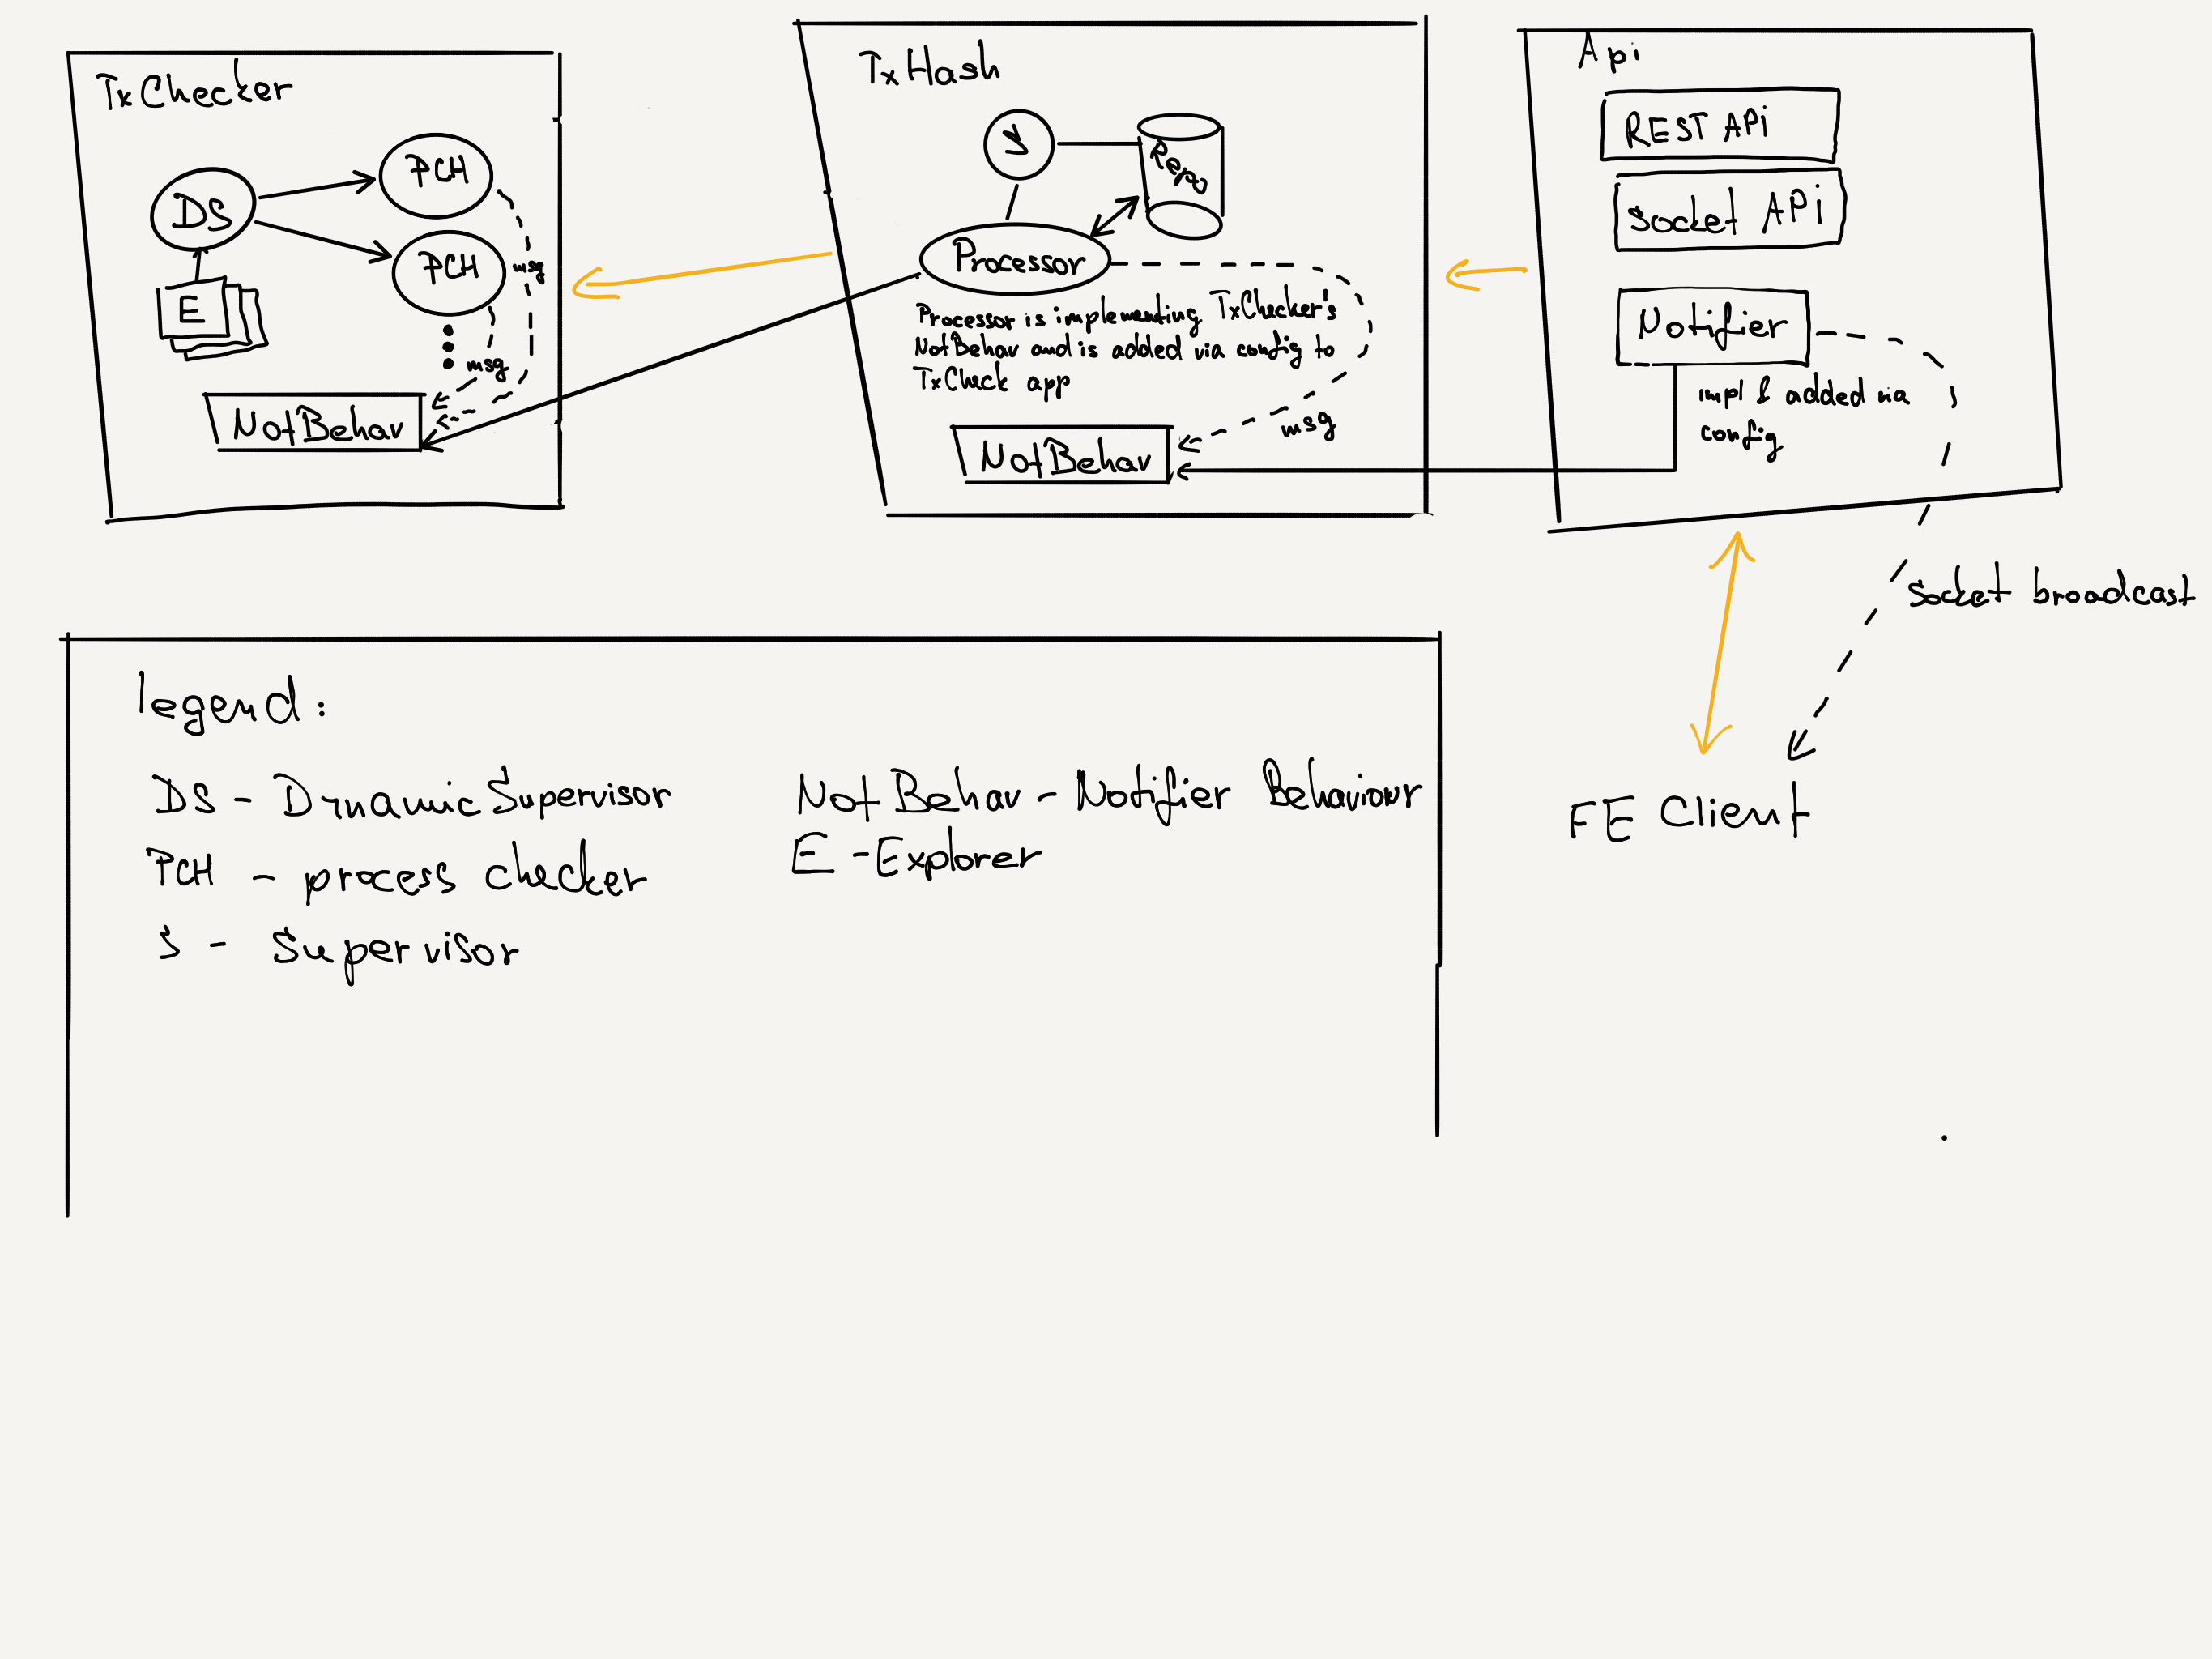 TxChecker
DS
PCH
PCH
msg
msg
E
NotBehav
TxHash
S
Repo
Processor
Processor is implementing TxChecker's
NotBehav and is added via config to
TxCheck app
msg
NotBehav
Api
REST APi
Socket APi
Notifier
impl & added via
config
socket broadcast
FE Client
legend:
DS - Dynamic Supervisor
PCH - process checker
S - Supervisor
NotBehav - Notifier Behaviour
E - Explorer